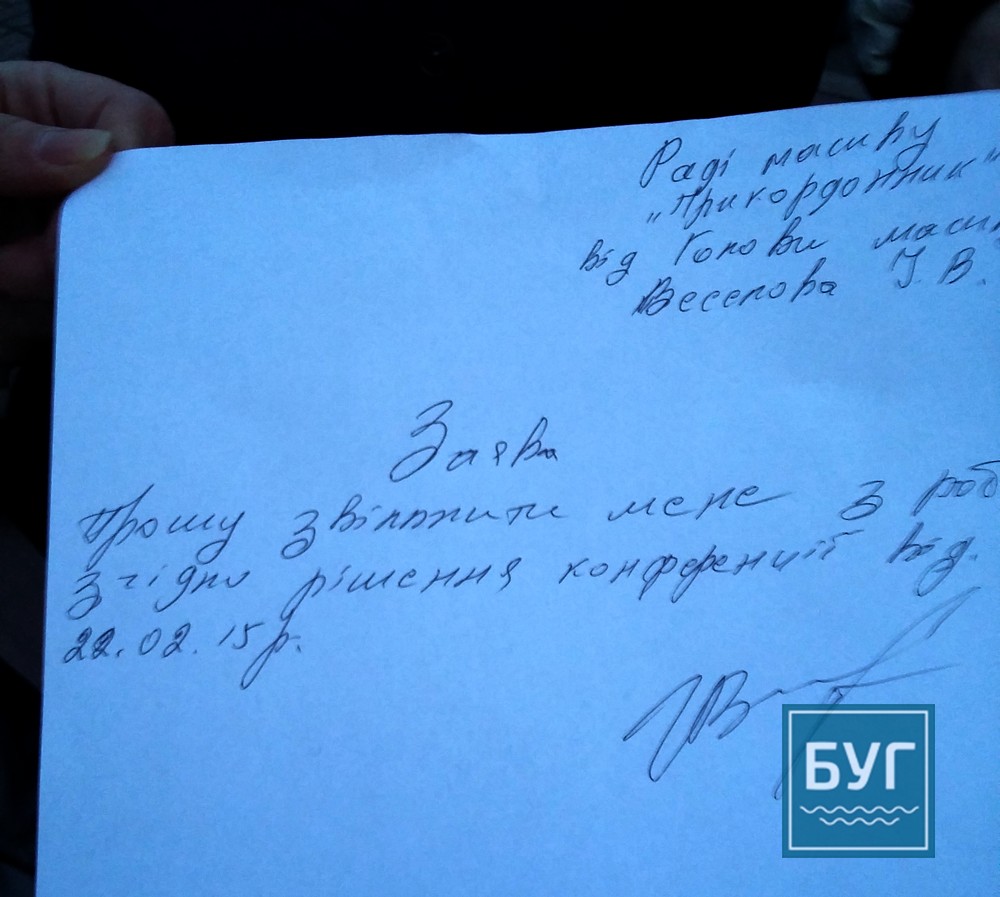 Раді масиву
"Прикордонник"
від Голови маси
Веселова І. В.
Заява
Прошу звільнити мене з роб
згідно рішення конференції від.
22.02.15р.
БУГ